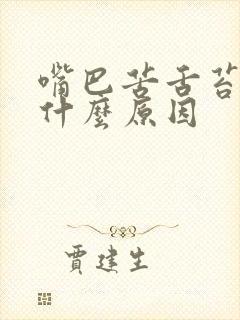 嘴巴苦舌苔
什麼原因
賈建生